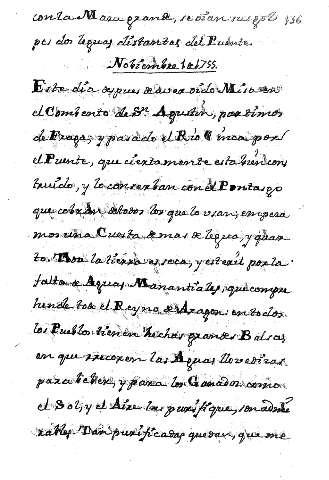 con la Maza grande, se oian sus gol 136
pes dos leguas distantes del Puente.
Nobiembre 1 de 1755.
Este dia despues de aver oido Misa en
el Combento de Sn. Agustin, partimos
de Fraga, y pasado el Rio Cinca por
el Puente, que ciertamente esta bien cons
truido, y lo conserban con el Pontazgo
que cobran de todos los que lo usan, empeza
mos una Cuesta de mas de legua, y quar
to. Toda la tierra es seca, y esteril por la
falta de Aguas Manantiales, que compre
hende todo el Reyno de Aragon; en todos
los Pueblos tienen hechas grandes Balsas
en que recoxen las Aguas llovedizas
para beber, y para los Ganados, como
el Sol, y el Aire las purifique, son admi
rables. Tan purificadas quedan, que me